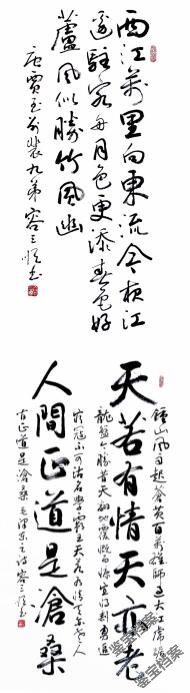 西江萬里向東流今夜江
邊駐客舟月色更添春色好
蘆風似勝竹風幽
唐賈至別裴九弟 容三書
鐘山風雨起蒼黄百萬雄師過大江虎踞
天若有情天亦老
龍盤今勝昔天翻地覆慨而慷宜將剩勇追
窮寇不可沽名學霸王天若有情天亦老人
人間正道是滄桑
間正道是滄桑 毛澤東詩 容三書
鉴宝档案